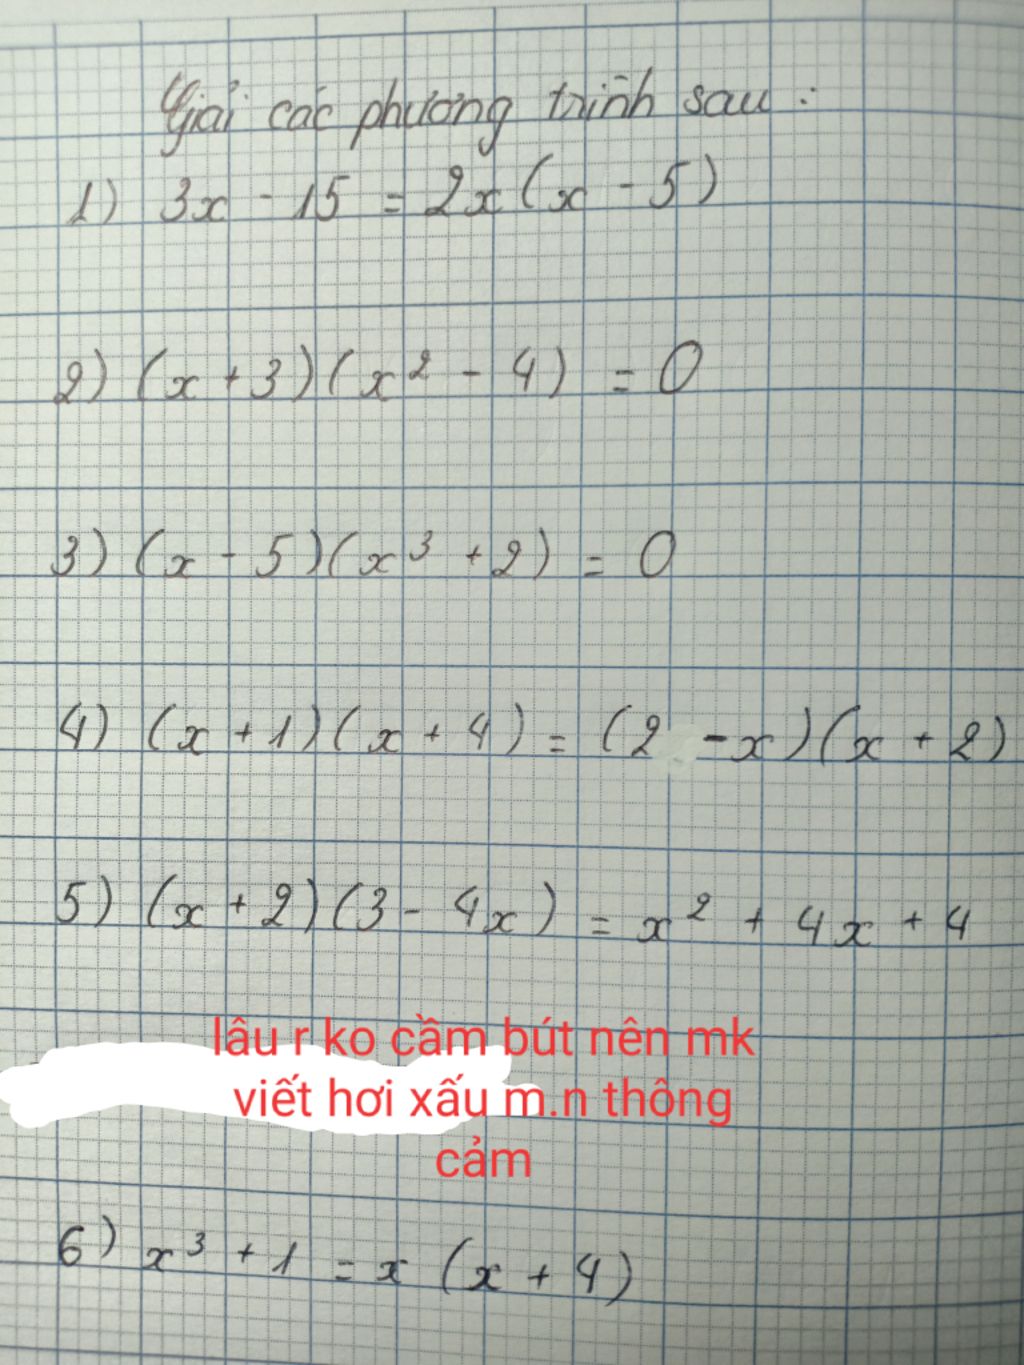 Giải các phương trình sau :
1) 3x - 15 = 2x(x - 5)
2) (x + 3)(x² - 4) = 0
3) (x - 5)(x³ + 2) = 0
4) (x + 1)(x + 4) = (2 - x)(x + 2)
5) (x + 2)(3 - 4x) = x² + 4x + 4
lâu r ko cầm bút nên mk
viết hơi xấu m.n thông
cảm
6) x³ + 1 = x (x + 4)